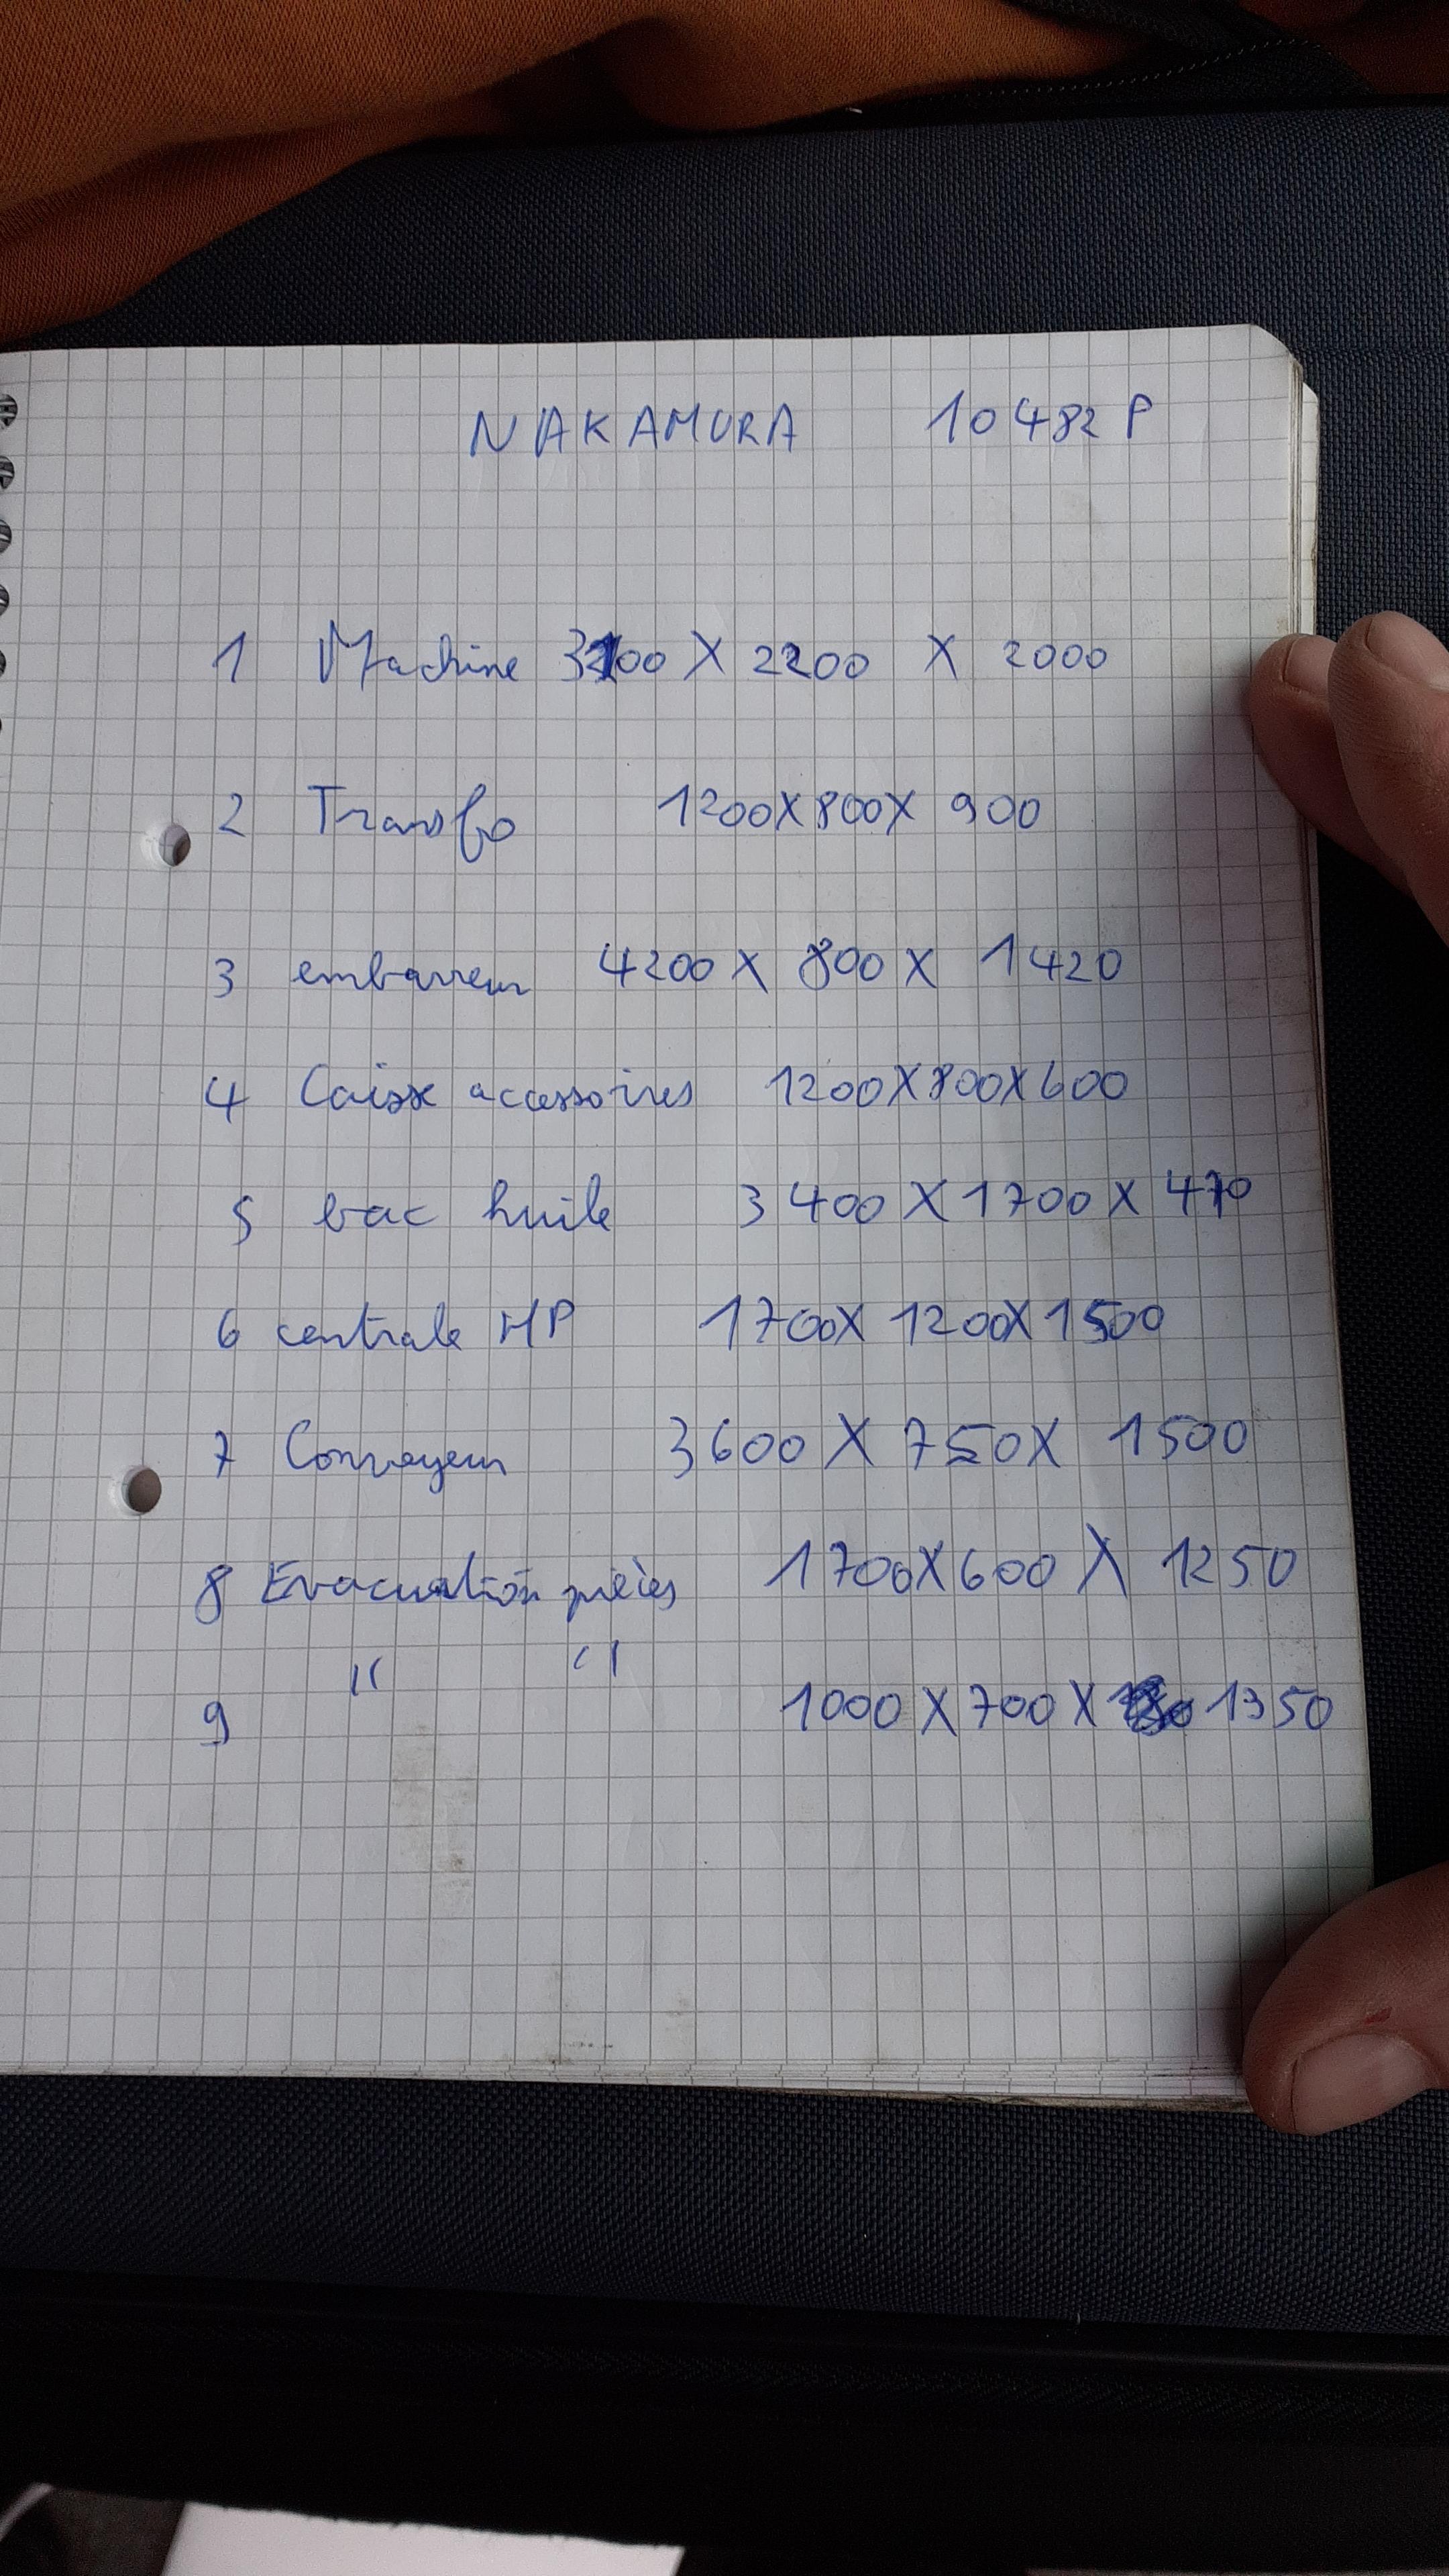 NAKAMURA 10482 P
1 Machine 3100 X 2200 X 2000
2 Transfo 1200X800X 900
3 embarreur 4200 X 800 X 1420
4 Caisse accessoires 1200X800X600
5 bac huile 3400 X 1700 X
6 centrale HP 1700X 1200X1500
7 Convoyeur 3600 X 750X 1500
8 Evacuation pièces 1700X600 X 1250
9 " " 1000 X 700 X 1350